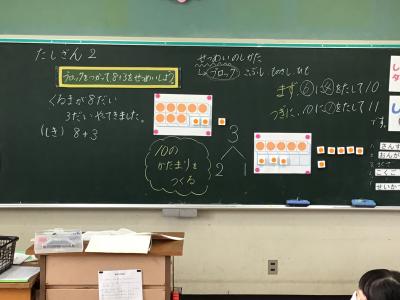 たしざん2
ブロックをつかって、8+3をせつめいしよう。
くるまが8だい
3だいやってきました。
(しき) 8+3
せつめいのしかた
ブロック
まず、8に2をたして10
つぎに、10に1をたして11
です。
3
2 1
10の
かたまりを
つくる
さんす
おんが
こくご
せいかつ